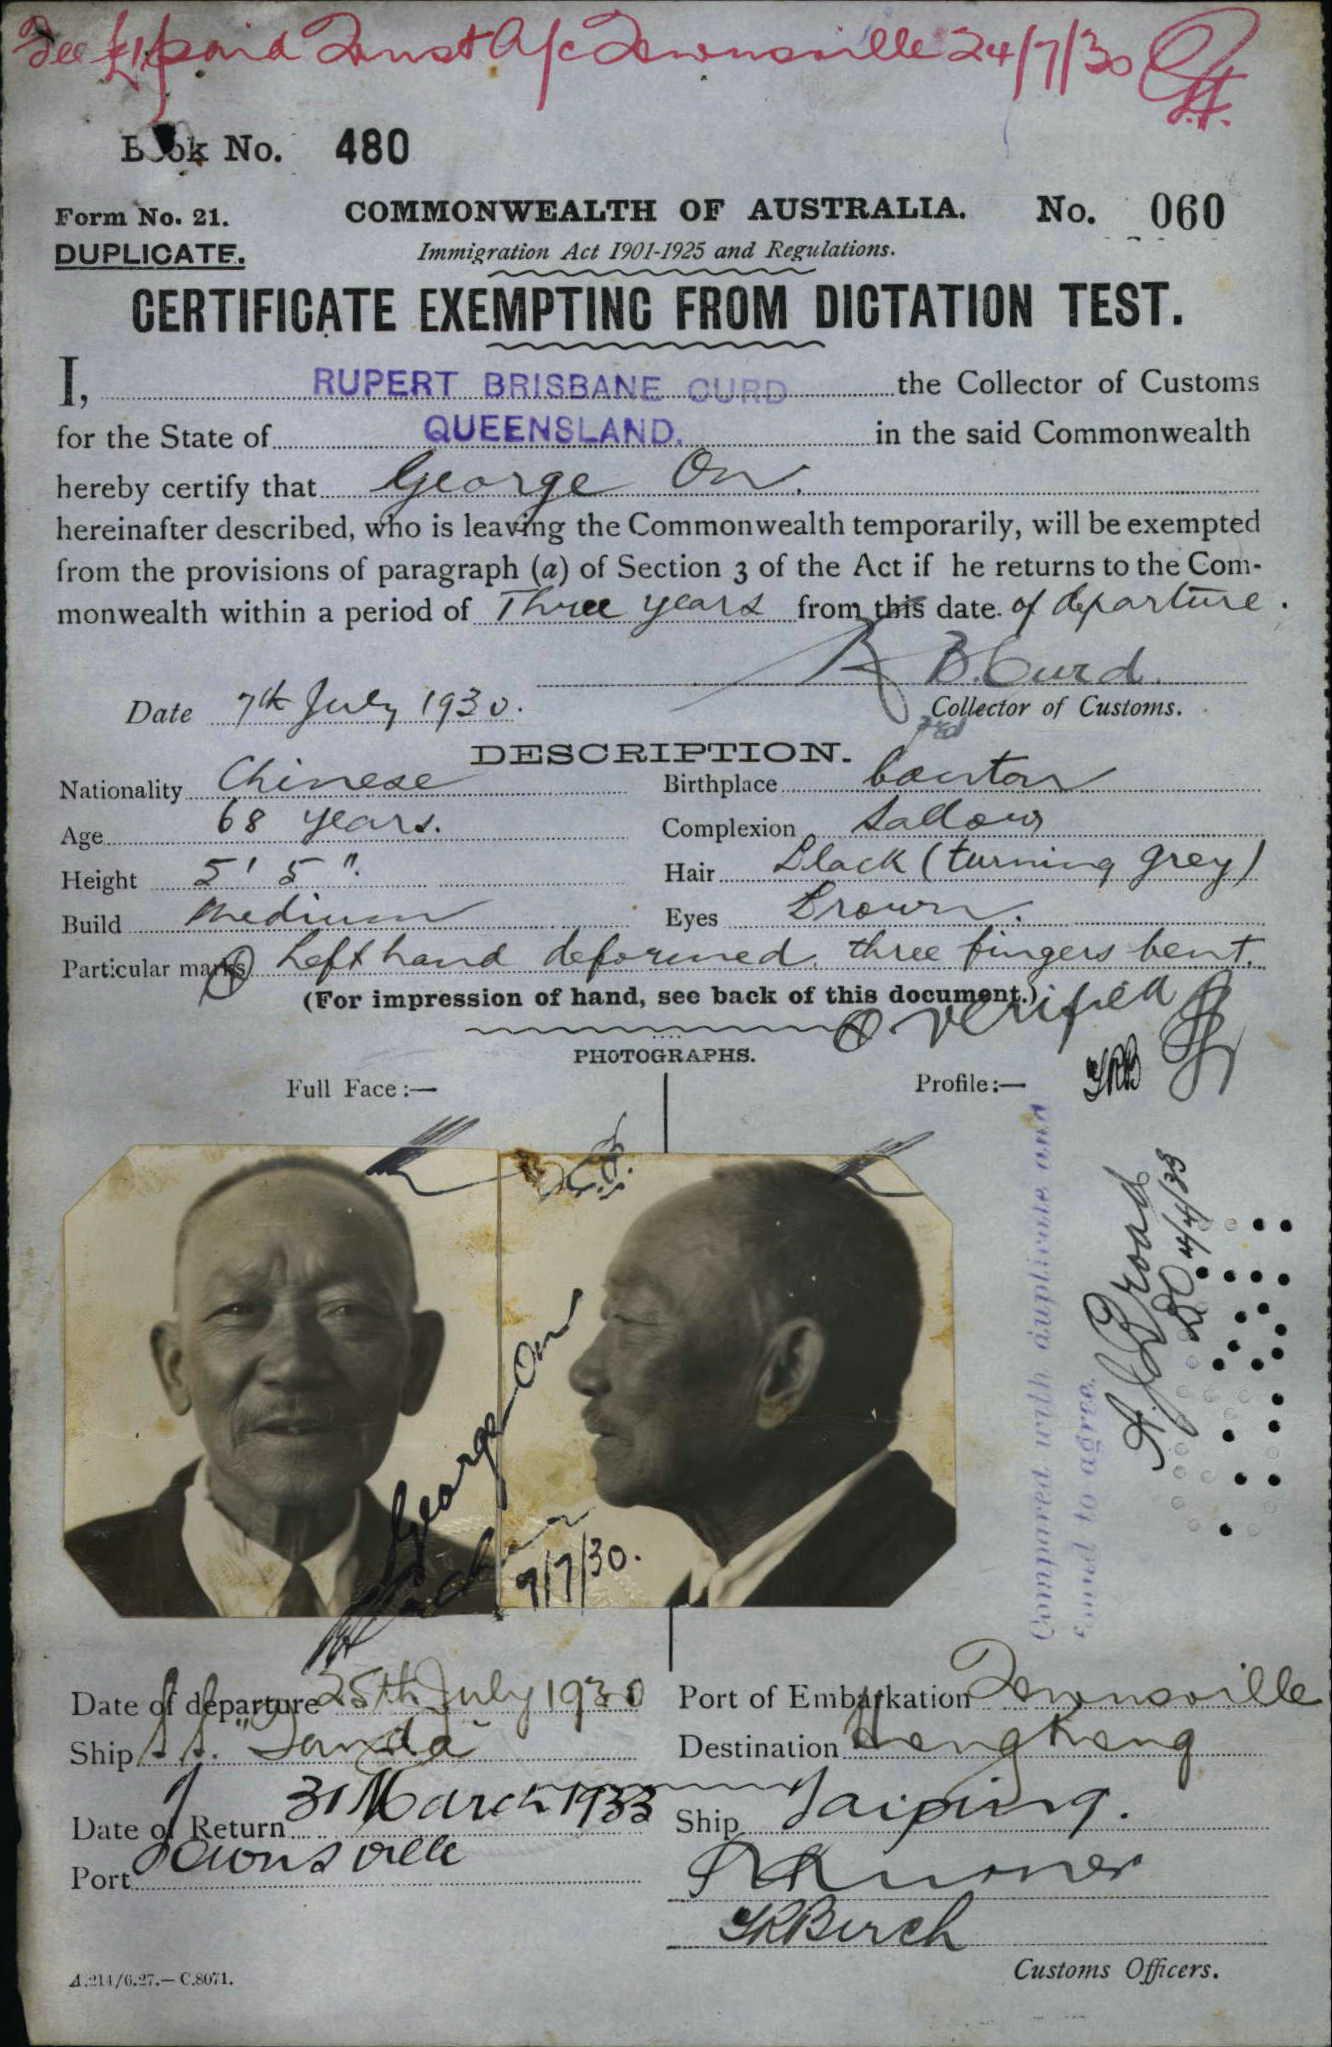 Fee £1 paid Trust A/c Townsville 24/7/30
Book No. 480
Form No. 21. COMMONWEALTH OF AUSTRALIA. No. 060
DUPLICATE. Immigration Act 1901-1925 and Regulations.
CERTIFICATE EXEMPTING FROM DICTATION TEST.
I, RUPERT BRISBANE CURD the Collector of Customs
for the State of QUEENSLAND. in the said Commonwealth
hereby certify that George On.
hereinafter described, who is leaving the Commonwealth temporarily, will be exempted
from the provisions of paragraph (a) of Section 3 of the Act if he returns to the Com-
monwealth within a period of Three years from this date of departure.
R B. Curd.
Date 7th July 1930. Collector of Customs.
DESCRIPTION.
Nationality Chinese Birthplace Canton
Age 68 years. Complexion Sallow
Height 5' 5". Hair Black (turning grey)
Build Medium Eyes Brown.
Particular marks Left hand deformed. three fingers bent.
(For impression of hand, see back of this document.)
verified
PHOTOGRAPHS.
Full Face:— Profile:— TRB
George On
7/7/30.
Compared with duplicate and
found to agree.
A. J. Broad
4/4/33
Date of departure 25th July 1930 Port of Embarkation Townsville
Ship S.S. "Tanda" Destination Hong Kong
Date of Return 31 March 1933 Ship Taiping.
Port Townsville
TRBirch
A.214/6.27.—C.8071. Customs Officers.